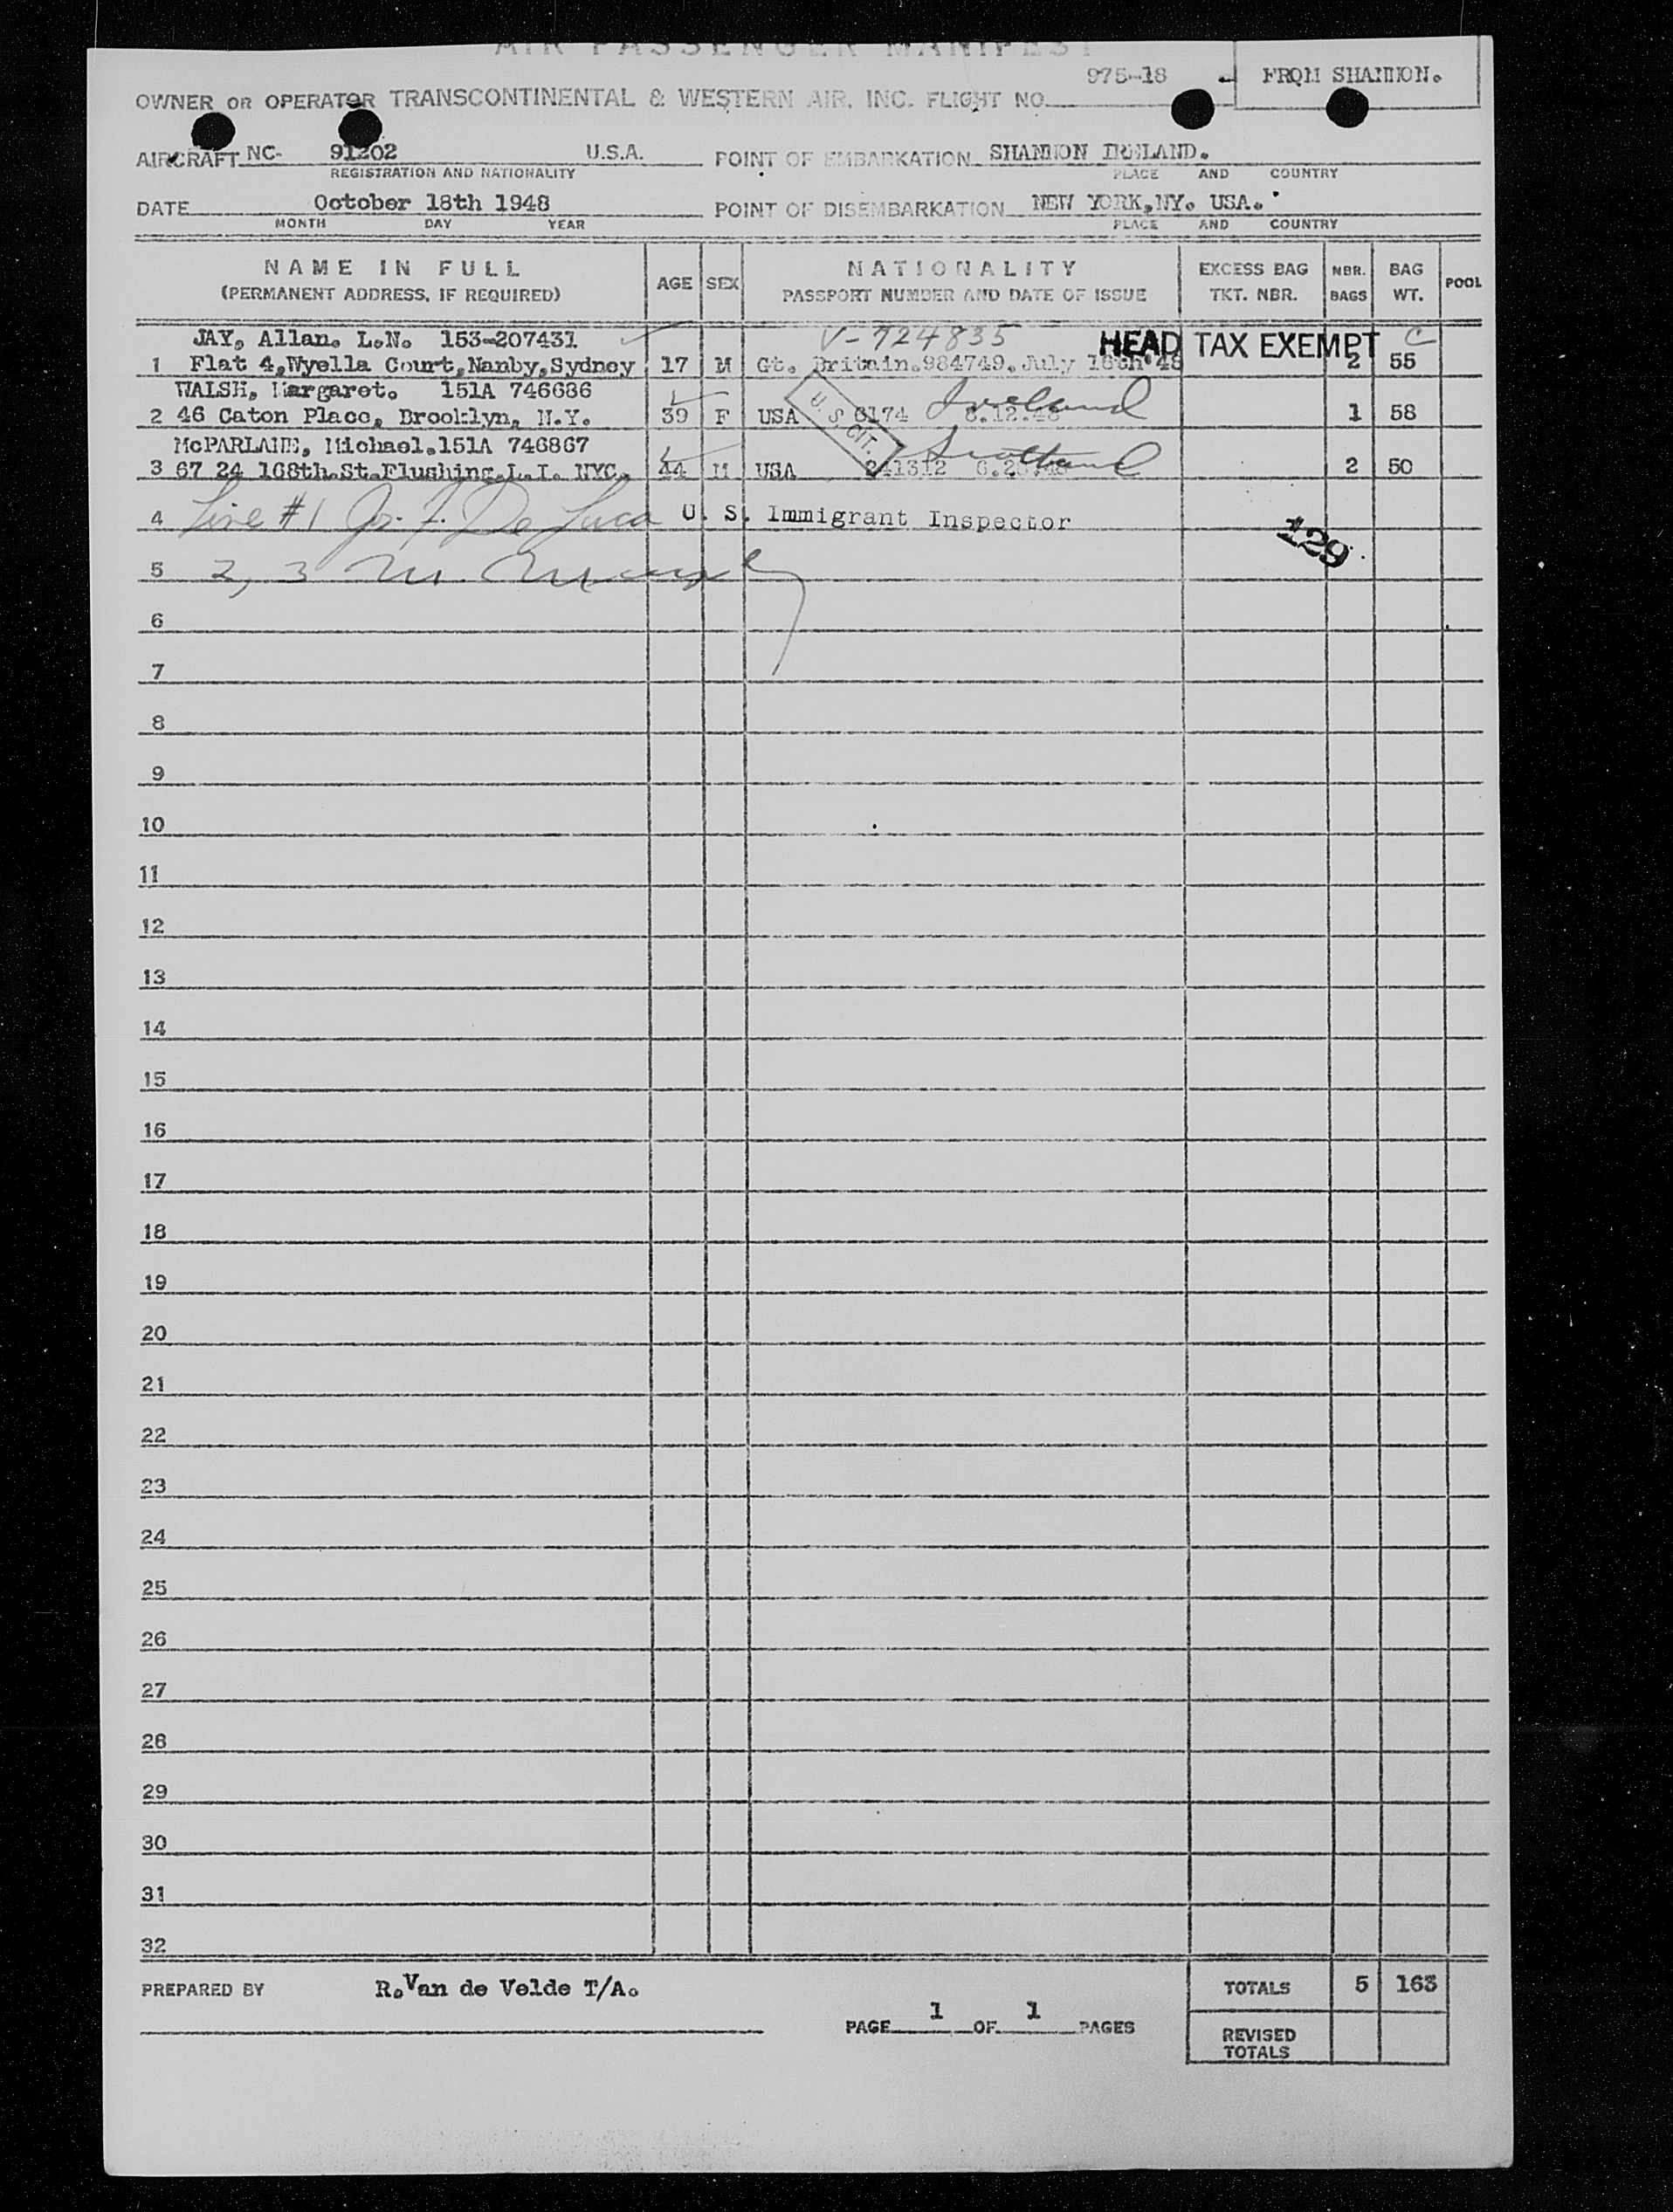 AIR PASSENGER MANIFEST
975-18 FROM SHANNON.
OWNER OR OPERATOR TRANSCONTINENTAL & WESTERN AIR, INC. FLIGHT NO.
AIRCRAFT NC- 91202 U.S.A. POINT OF EMBARKATION SHANNON IRELAND.
REGISTRATION AND NATIONALITY PLACE AND COUNTRY
DATE October 18th 1948 POINT OF DISEMBARKATION NEW YORK,NY. USA.
MONTH DAY YEAR PLACE AND COUNTRY
NAME IN FULL AGE SEX NATIONALITY EXCESS BAG NBR. BAG POOL
(PERMANENT ADDRESS, IF REQUIRED) PASSPORT NUMBER AND DATE OF ISSUE TKT. NBR. BAGS WT.
JAY, Allan. L.N. 153-207431 V-724835 HEAD TAX EXEMPT C
1 Flat 4,Wyella Court,Nanby,Sydney 17 M Gt. Britain.984749.July 18th'48 2 55
WALSH, Margaret. 151A 746686 Ireland
2 46 Caton Place, Brooklyn, N.Y. 39 F USA U. S. CIT. 6174 8.12.48 1 58
McPARLANE, Michael.151A 746867 Scotland
3 67 24 168th.St.Flushing.L.I. NYC. 44 M USA 241312 2 50
4 Line #1 Jos. F. De Luca U. S. Immigrant Inspector
129
5 2, 3 M.
6
7
8
9
10
11
12
13
14
15
16
17
18
19
20
21
22
23
24
25
26
27
28
29
30
31
32
PREPARED BY R.Van de Velde T/A. TOTALS 5 163
PAGE 1 OF 1 PAGES
REVISED
TOTALS